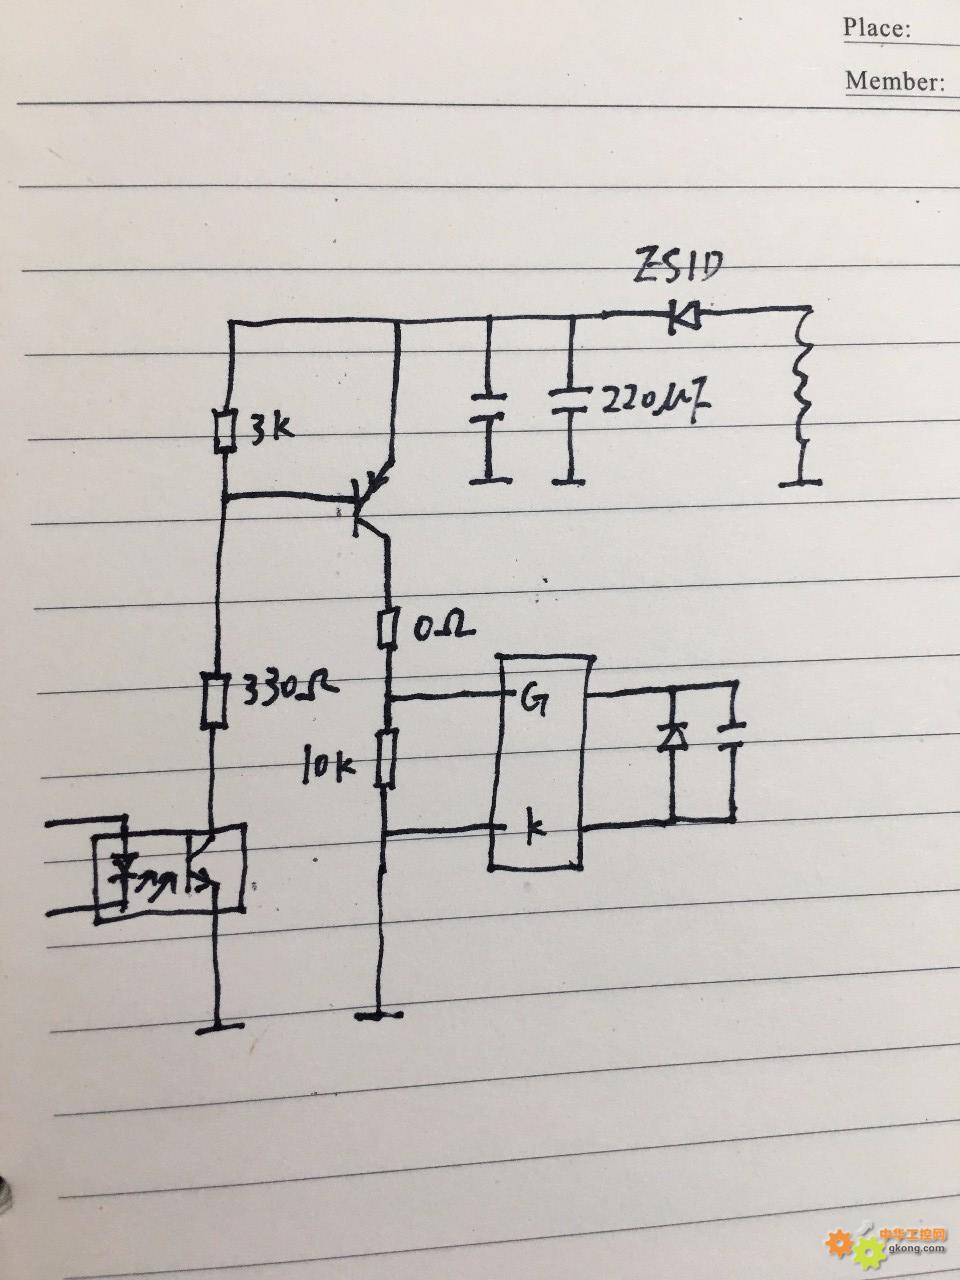 Place:
Member:
ZS1D
3k
220μF
0Ω
330Ω
G
10k
k
中华工控网
gkong.com